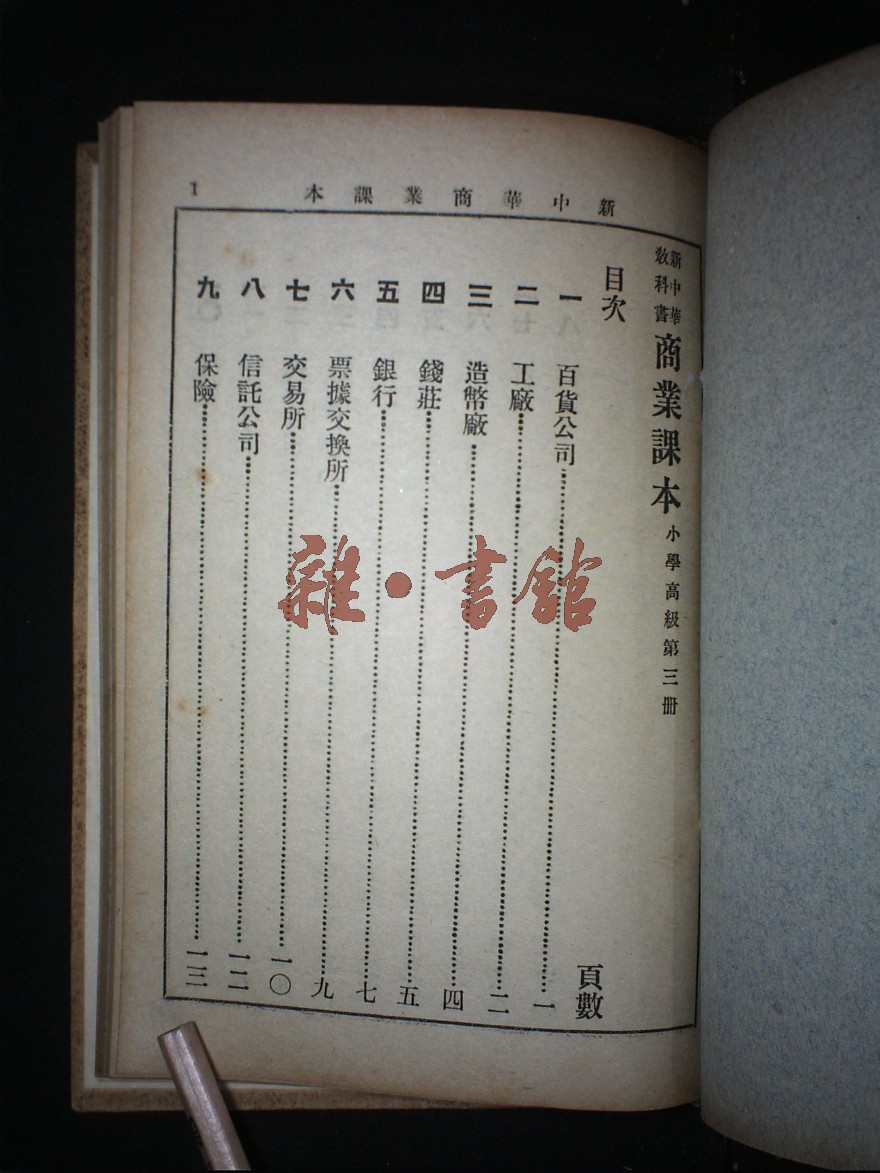 新中華商業課本
1
新中華
教科書
商業課本 小學高級第三冊
目次
頁數
一 百貨公司 一
二 工廠 二
三 造幣廠 四
四 錢莊 五
五 銀行 七
六 票據交換所 九
七 交易所 一〇
八 信託公司 一二
九 保險 一三
雜·書館